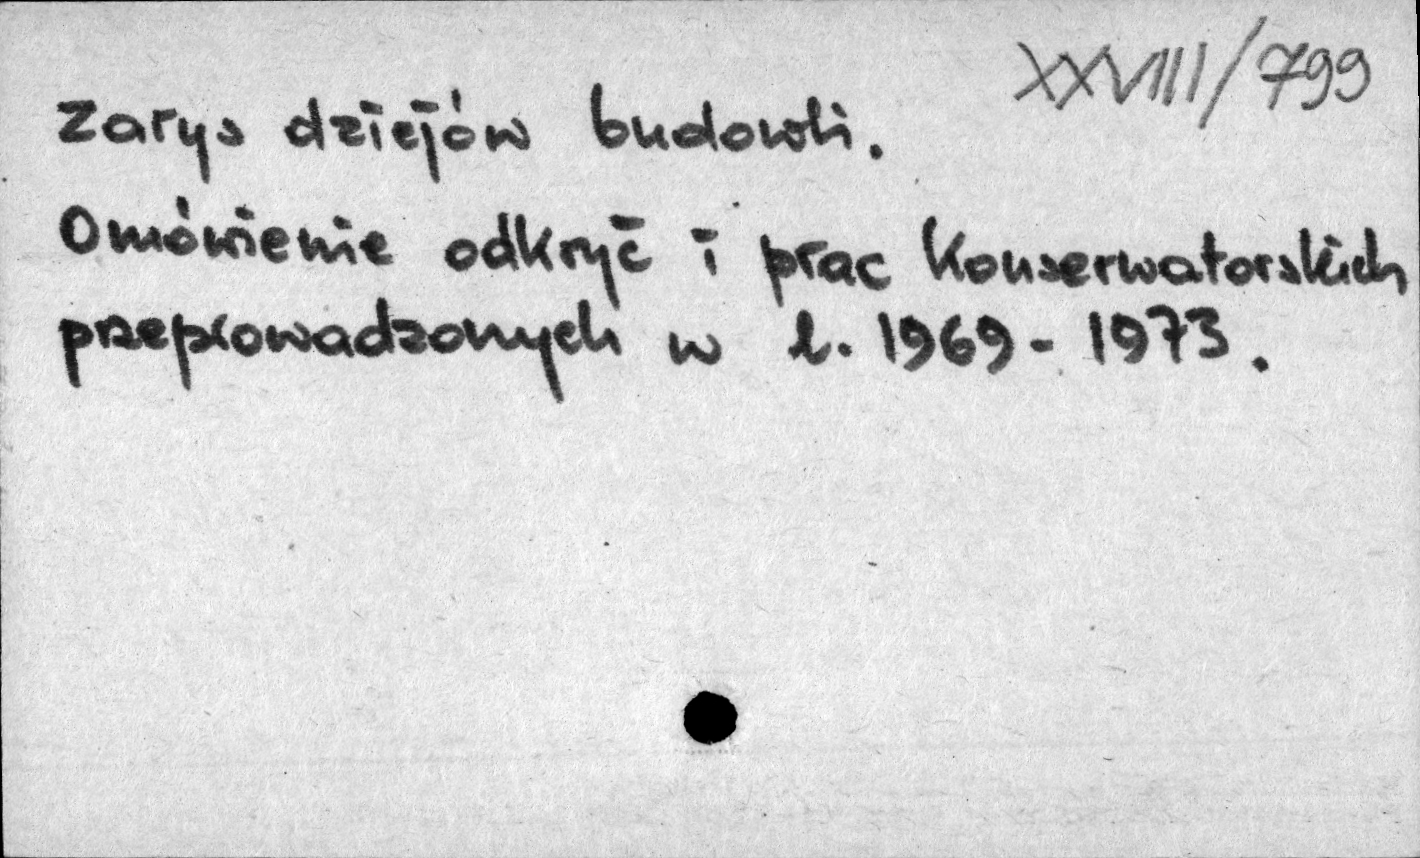 XXVIII/799
Zarys dziejów budowli.
Omówienie odkryć i prac konserwatorskich
przeprowadzonych w l. 1969-1973.